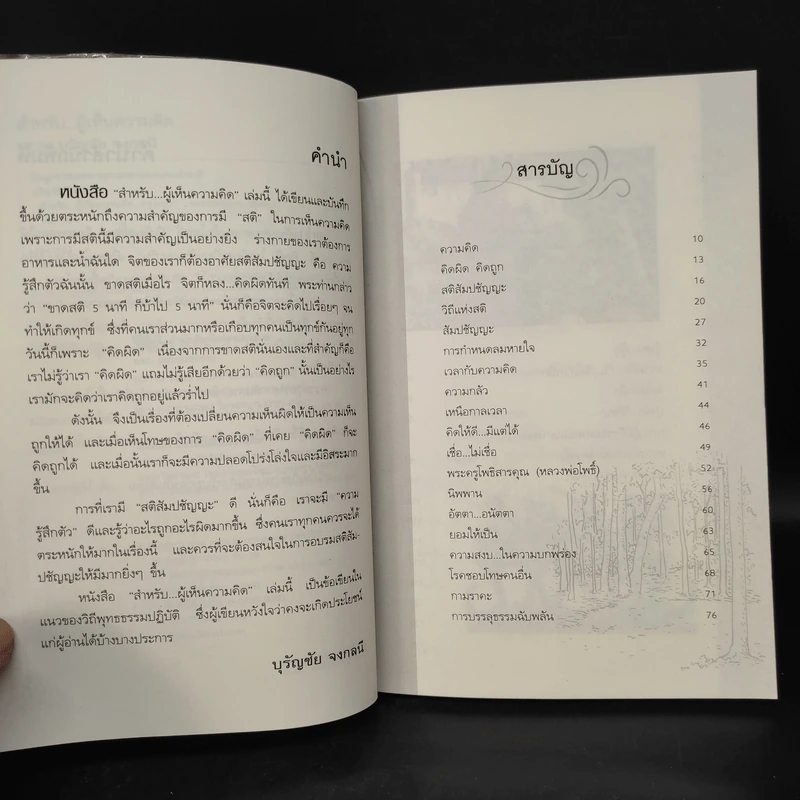 คำนำ
หนังสือ “สำหรับ...ผู้เห็นความคิด” เล่มนี้ ได้เขียนและบันทึก
ขึ้นด้วยตระหนักถึงความสำคัญของการมี “สติ” ในการเห็นความคิด
เพราะการมีสตินี้มีความสำคัญเป็นอย่างยิ่ง ร่างกายของเราต้องการ
อาหารและน้ำฉันใด จิตของเราก็ต้องอาศัยสติสัมปชัญญะ คือ ความ
รู้สึกตัวฉันนั้น ขาดสติเมื่อไร จิตก็หลง...คิดผิดทันที พระท่านกล่าว
ว่า “ขาดสติ 5 นาที ก็บ้าไป 5 นาที” นั่นก็คือจิตจะคิดไปเรื่อยๆ จน
ทำให้เกิดทุกข์ ซึ่งที่คนเราส่วนมากหรือเกือบทุกคนเป็นทุกข์กันอยู่ทุก
วันนี้ก็เพราะ “คิดผิด” เนื่องจากการขาดสตินั่นเองและที่สำคัญก็คือ
เราไม่รู้ว่าเรา “คิดผิด” แถมไม่รู้เสียอีกด้วยว่า “คิดถูก” นั้นเป็นอย่างไร
เรามักจะคิดว่าเราคิดถูกอยู่แล้วร่ำไป
ดังนั้น จึงเป็นเรื่องที่ต้องเปลี่ยนความเห็นผิดให้เป็นความเห็น
ถูกให้ได้ และเมื่อเห็นโทษของการ “คิดผิด” ที่เคย “คิดผิด” ก็จะ
คิดถูกได้ และเมื่อนั้นเราก็จะมีความปลอดโปร่งโล่งใจและมีอิสระมาก
ขึ้น
การที่เรามี “สติสัมปชัญญะ” ดี นั่นก็คือ เราจะมี “ความ
รู้สึกตัว” ดีและรู้ว่าอะไรถูกอะไรผิดมากขึ้น ซึ่งคนเราทุกคนควรจะได้
ตระหนักให้มากในเรื่องนี้ และควรที่จะต้องสนใจในการอบรมสติสัม-
ปชัญญะให้มีมากยิ่งๆ ขึ้น
หนังสือ “สำหรับ...ผู้เห็นความคิด” เล่มนี้ เป็นข้อเขียนใน
แนวของวิถีพุทธธรรมปฏิบัติ ซึ่งผู้เขียนหวังใจว่าคงจะเกิดประโยชน์
แก่ผู้อ่านได้บ้างบางประการ
บุรัญชัย จงกลนี
สารบัญ
ความคิด 10
คิดผิด คิดถูก 13
สติสัมปชัญญะ 16
วิถีแห่งสติ 20
สัมปชัญญะ 27
การกำหนดลมหายใจ 32
เวลากับความคิด 35
ความกลัว 41
เหนือกาลเวลา 44
คิดให้ดี...มีแต่ได้ 46
เชื่อ...ไม่เชื่อ 49
พระครูโพธิสารคุณ (หลวงพ่อโพธิ์) 52
นิพพาน 56
อัตตา...อนัตตา 60
ยอมให้เป็น 63
ความสงบ...ในความบกพร่อง 65
โรคชอบโทษคนอื่น 68
กามราคะ 71
การบรรลุธรรมฉับพลัน 76